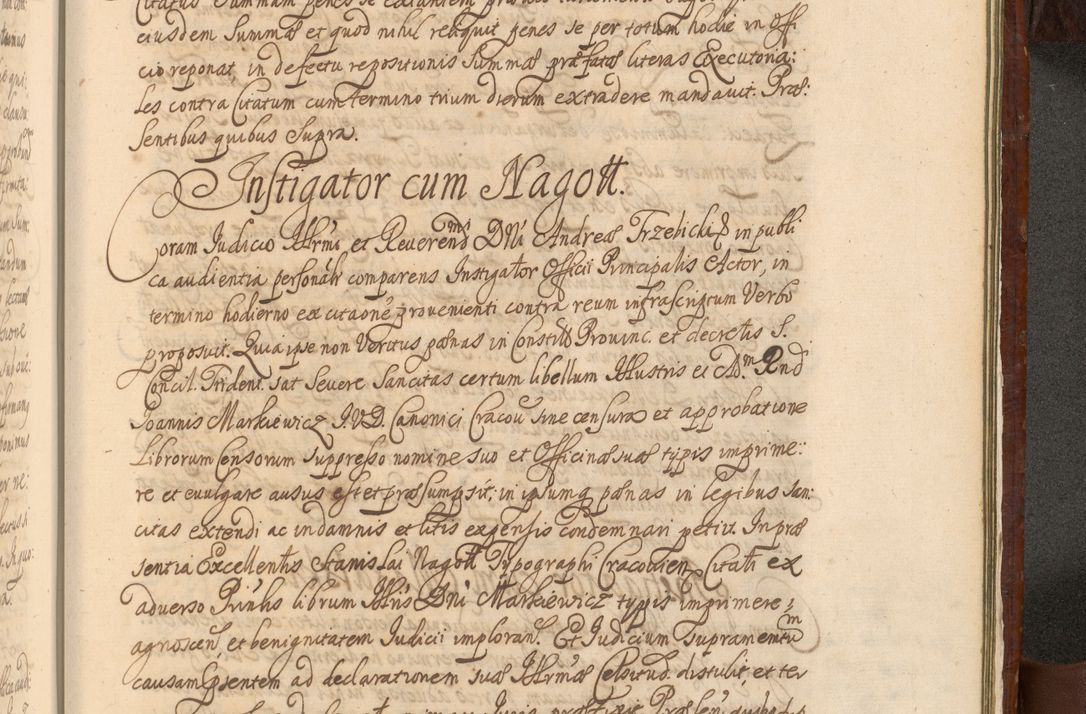 eiusdem Summæ et quod nihil reliquit penes se per totum hodie in Offi
cio reponat, in defectu repositionis Summæ præfatæ literas Executoria:
les contra Citatum cum termino trium dierum extradere mandavit. Præ:
sentibus quibus supra.
Instigator cum Nagott.
Coram Judicio Illrmi et Reverendmi DNi Andreæ Trzebicki Eppi in publi
ca audientia personalr comparens Instigator Officii Principalis Actor, in
termino hodierno ex citaone provenienti contra reum infrascriptum Verbo
proposuit. Quia ipse non Veritus pænas in Constitt Provinc. et decretis S.
Concil. Trident. sat severe Sancitas certum libellum Illustris ei Adm Rnd
Joannis Markiewicz J.V.D. Canonici Cracov sine censura et approbatione
Librorum Censorum suppresso nomine suo et Officinæ suæ typis imprime:
re et evulgare ausus est et præsumpsit, in ipsumq pænas in legibus san:
citas extendi ac in damnis et litis expensis condemnari petiit. In præ
sentia Excellentis Stanislai Nagott Typographi Cracovien. Citati ex
adverso Prinlis librum Illris DNi Markiewicz typis imprimere,
agnoscen, et benignitatem Judicii imploran. Et Judicium supramenttum
causam Psentem ad declarationem suæ Illrmæ Celsitud. distulit, et ter